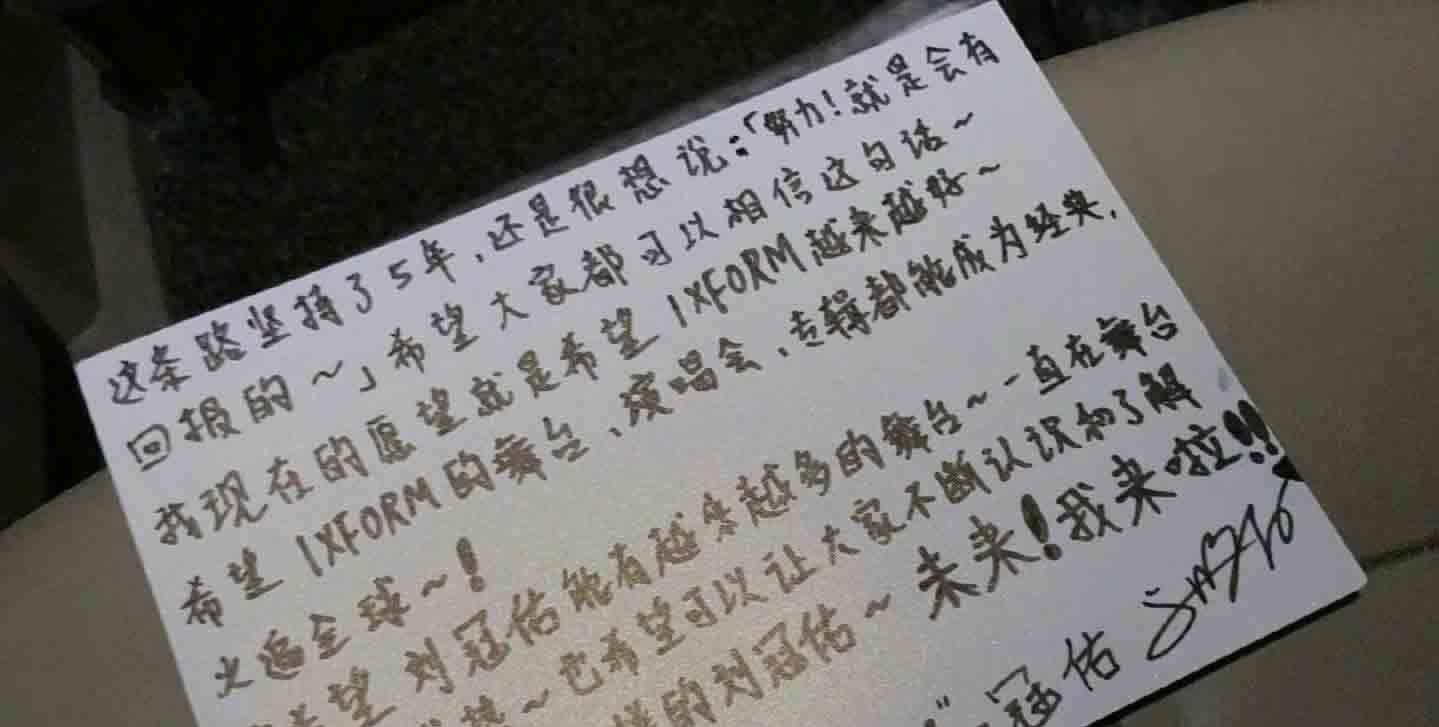 这条路坚持了5年，还是很想说：「努力！就是会有
回报的~」希望大家都可以相信这句话~
我现在的愿望就是希望 IXFORM越来越好~
希望 IXFORM的舞台、演唱会、专辑都能成为经典，
火遍全球~！
希望 刘冠佑能有越来越多的舞台~一直在舞台
~也希望可以让大家不断认识和了解
的刘冠佑~ 未来！我来啦!!
冠佑